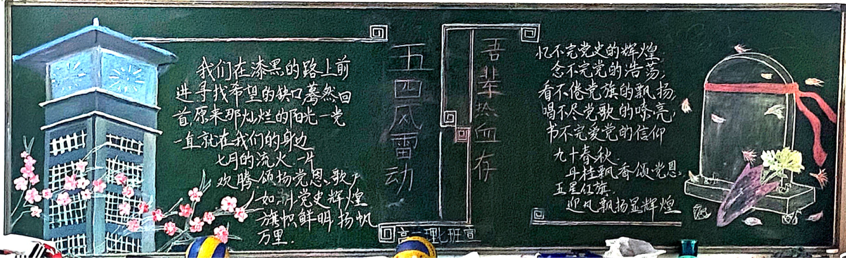 我们在漆黑的路上前
进寻找希望的缺口蓦然回
首原来那灿烂的阳光一党
一直就在我们的身边
七月的流火一片
欢腾颂扬党恩歌声
如潮党史辉煌
旗帜鲜明扬帆
万里.
五四风雷动
吾辈热血存
高一理七班宣
忆不完党史的辉煌
念不完党的浩荡,
看不倦党旗的飘扬
唱不尽党歌的嘹亮,
书不完爱党的信仰
九十春秋.
丹桂飘香颂党恩
五星红旗.
迎风飘扬显辉煌